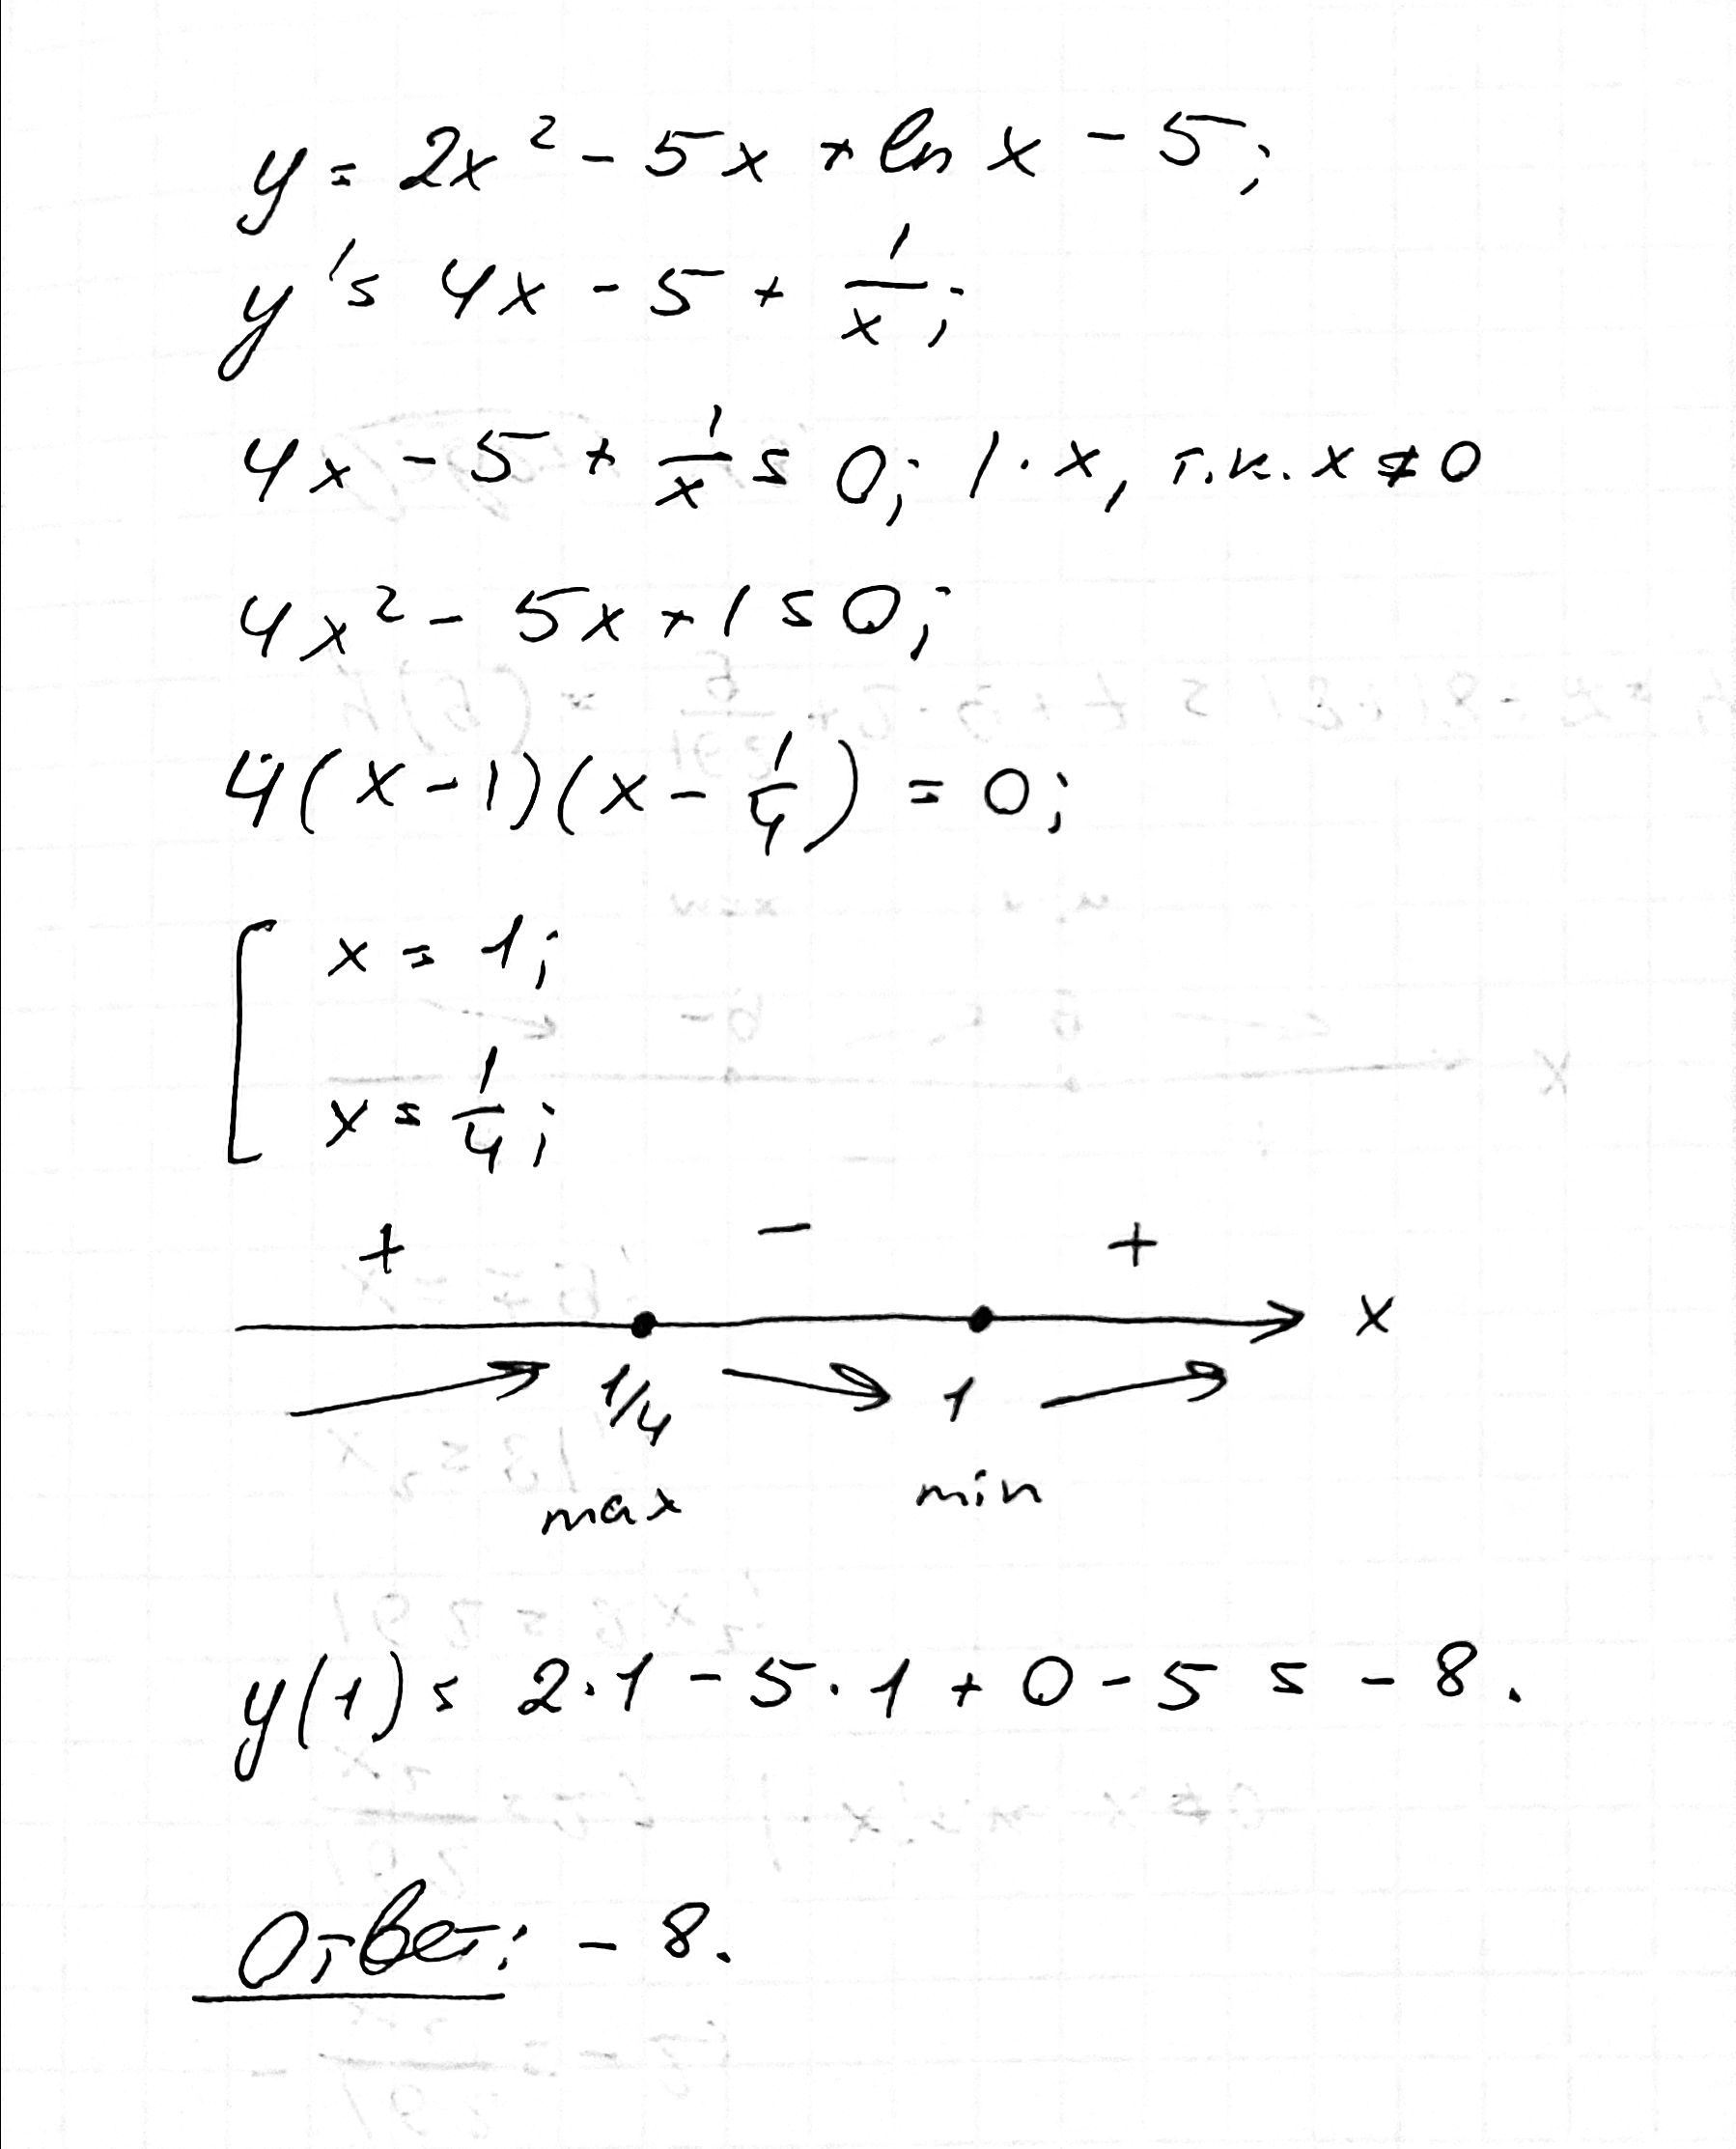 y = 2x² - 5x + ln x - 5;
y' = 4x - 5 + 1/x;
4x - 5 + 1/x = 0; | · x, т.к. x ≠ 0
4x² - 5x + 1 = 0;
4(x - 1)(x - 1/4) = 0;
[ x = 1;
x = 1/4;
+ - +
x
1/4 1
max min
y(1) = 2·1 - 5·1 + 0 - 5 = -8.
Ответ: -8.